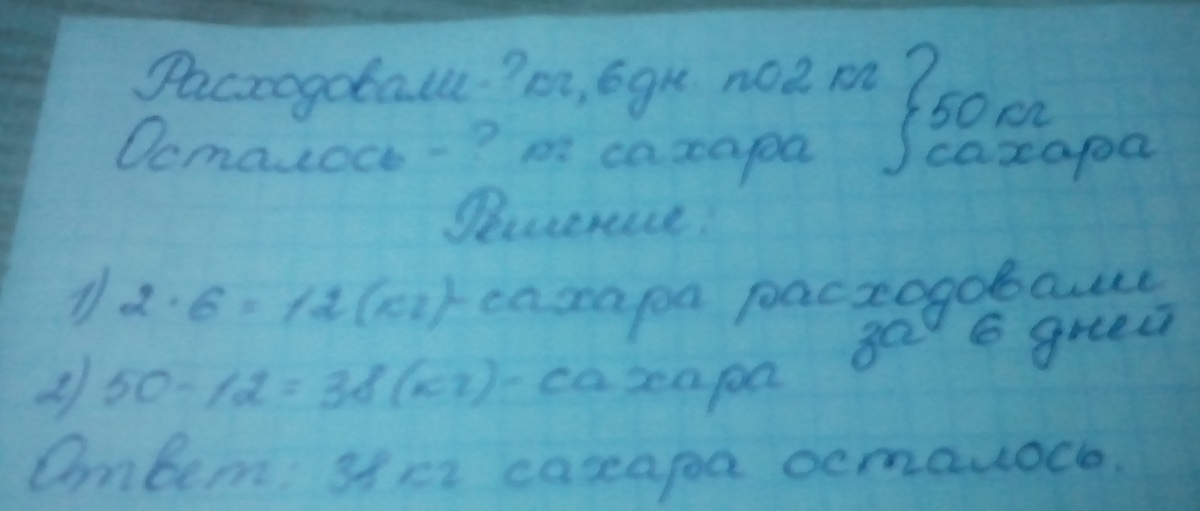 Расходовали - ? кг, 6 дн по 2 кг } 50 кг
Осталось - ? кг сахара } сахара
Решение:
1) 2 · 6 = 12 (кг) - сахара расходовали
за 6 дней
2) 50 - 12 = 38 (кг) - сахара
Ответ: 38 кг сахара осталось.